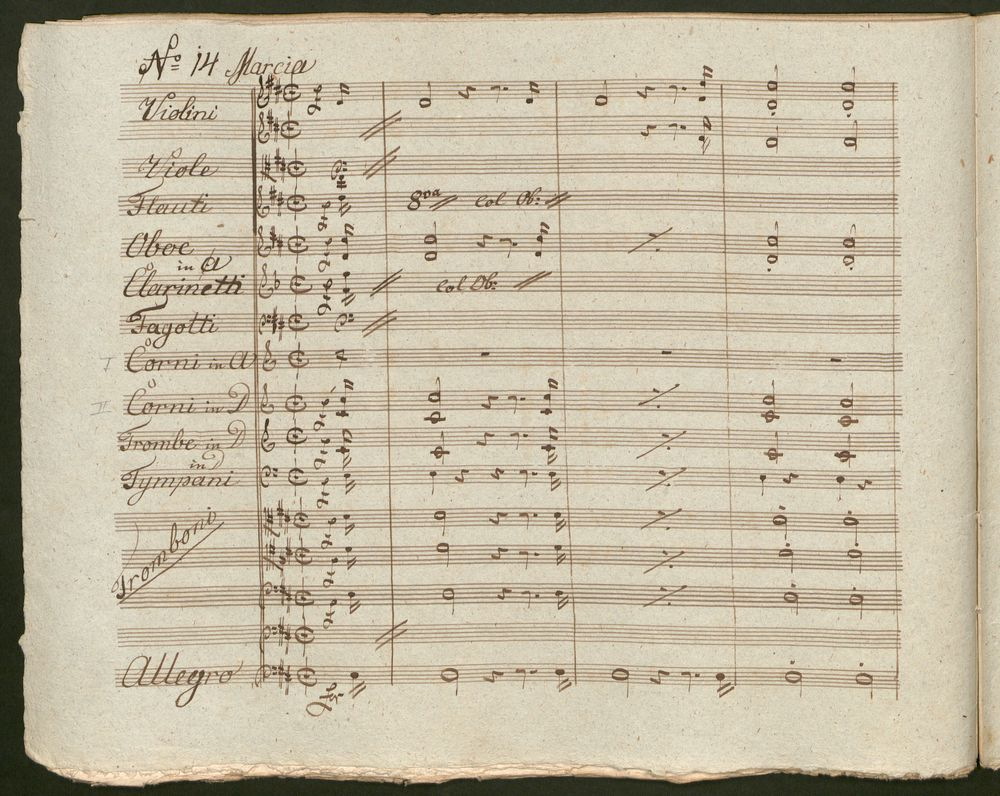 No 14 Marcia
Violini
Viole
Flauti
8va col Ob:
Oboe
in A
Clarinetti
col Ob:
Fagotti
I Corni in A
II Corni in D
Trombe in D
in D
Tympani
Tromboni
Allegro